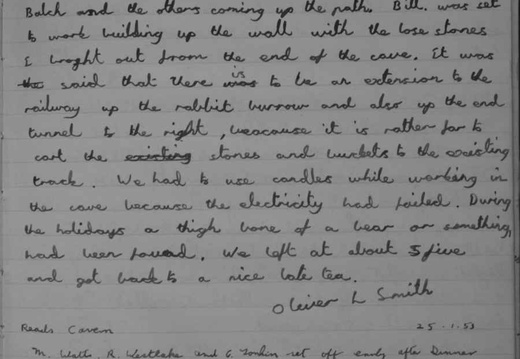 Balch and the others coming up the path. Bill. was set
to work building up the wall with the lose stones
I broght out from the end of the cave. It was
the said that there was is to be an extension to the
railway up the rabbit burrow and also up the end
tunnel to the right, beacause it is rather far to
cart the existing stones and buckets to the existing
track. We had to use candles while working in
the cave because the electricity had failed. During
the holidays a thigh bone of a bear or something,
had been found. We left at about 5 five
and got back to a nice late tea.
Oliver L Smith
Reads Cavern 25-1-53
M. Walls, R. Westlake and G. Tonkin set off early after Dinner